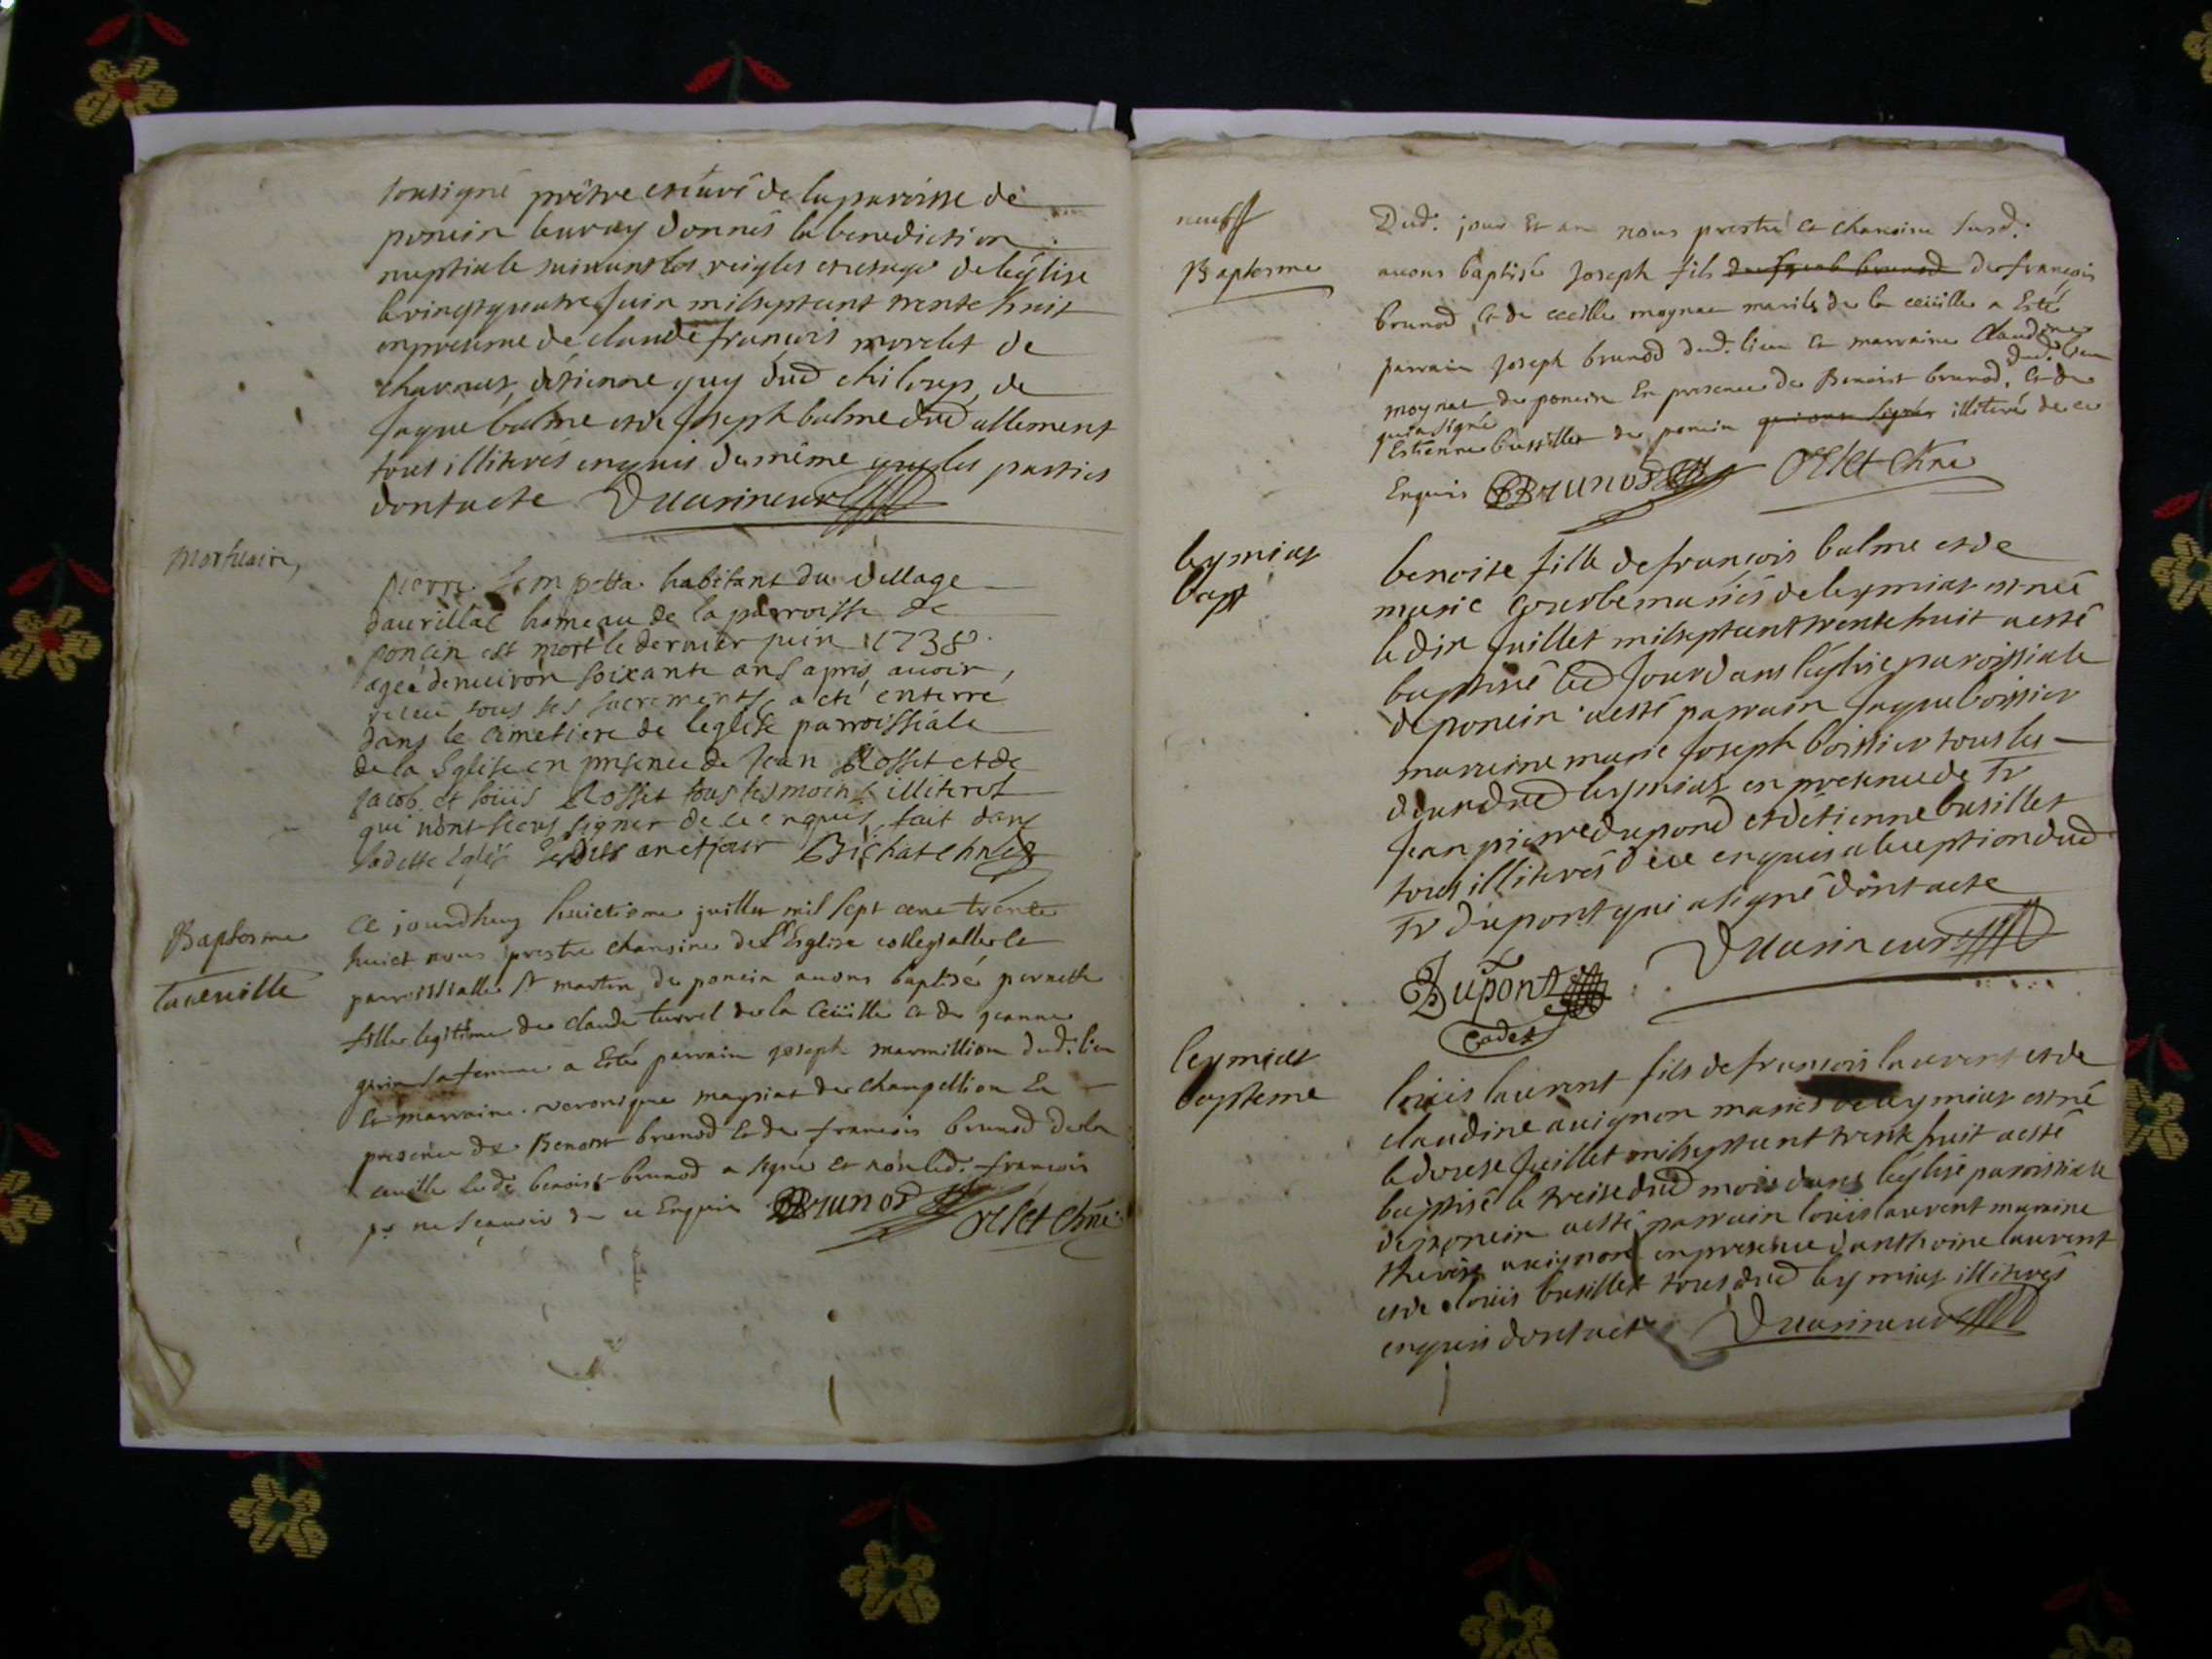 sousigné prêtre et curé de la paroisse de
poncin leur ay donnés la benediction
nuptiale suivant les reigles et usages de leglise
le vingt quatre Juin mil sept cent trente huit
en presence de claude françois morelet de
etienne guy dud chiloup, de
Jaque balme et de Joseph balme dud allement
tous illiterés enquis de même que les parties
dont acte Duarineur
Mortuaire,
pierre habitant du village
daurillac hameau de la parroisse de
poncin est mort le dernier juin 1738
agée denuiron soixante ans apris auoir,
receu tous ses sacrements, a eté enterre
dans le cimetiere de leglise parroissiale
de la Eglise en presence de Jean Rosset et de
Jacob et Loüis Rosset tous tesmoins illiterés
qui nont sceus signer de ce enquis, fait dans
ladette Eglise an et jour Bichat chne
Baptesme
Ce jourdhuy huictieme juillet mil sept cent trente
huict nous prestre chanoine de L'Esglise collegialle et
parroissialle St martin de poncin auons baptisé pernette
fille legitime de claude turrel de la Ceüille et de jeanne
sa femme a Esté parrain joseph marmillion dud. lieu
et marraine veronique magniat de champollion En
presence de Benoist brunod Et de francois brunod de la
ceuille led. benoist brunod a signé et non led. francois
pr ne sçauoir de ce Enquis BBrunod Orset Chne
Baptesme
Dud. jour Et an nous prestre et chanoine susd.
auons baptisé Joseph fils de françois
brunod et de cecille moynat mariés de la ceüille a Esté
parrain joseph brunod dud. lieu et marraine Claudine
moynat de poncin En presence de Benoist brunod, dud. lieu Et de
qui a signé
Estienne bussillet de poncin qui ont signés illiteré de ce
Enquis BBrunod Orset Chne
leymiat
bapt
benoite fille de françois balme et de
marie gourbe mariés de leymiat est née
le dix Juillet mil sept cent trente huit a esté
baptisé led Jour dans léglise paroissiale
de poncin a esté parrain Jaque boissier
marreine marie Joseph boissier tous les
deux dud leymiat en presence de Sr
Jean pierre dupond et detienne busillet
tous illiterés de ce enquis a lexeption dud
Sr Dupont qui a signé dont acte
Duarineur
Dupont
Cadet
leymiat
bapteme
loüis laurent fils de françois laurent et de
claudine auignon mariés de leymiat est né
le douse Juillet mil sept cent trente huit a esté
baptisé le treise dud mois dans léglise paroissiale
de poncin a esté parrain loüis laurent maraine
therese auignon en presence danthoine laurent
et de loüis busillet tous dud leymiat illiterés
enquis dont acte Duarineur